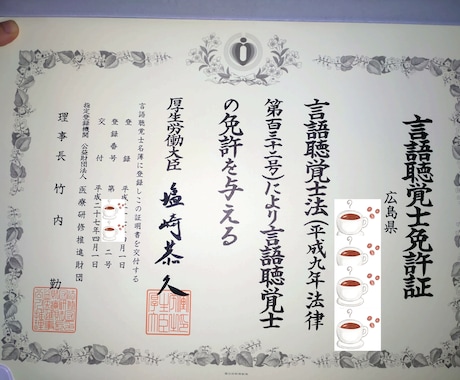 言語聴覚士免許証
広島県
言語聴覚士法(平成九年法律
第百三十二号)により言語聴覚士
の免許を与える
厚生労働大臣 塩崎恭久
言語聴覚士名簿に登録しこの証明書を交付する
登録 平成 月一日
登録番号 第 二号
交付 平成二十七年四月一日
指定登録機関 公益財団法人 医療研修推進財団
理事長 竹内 勤